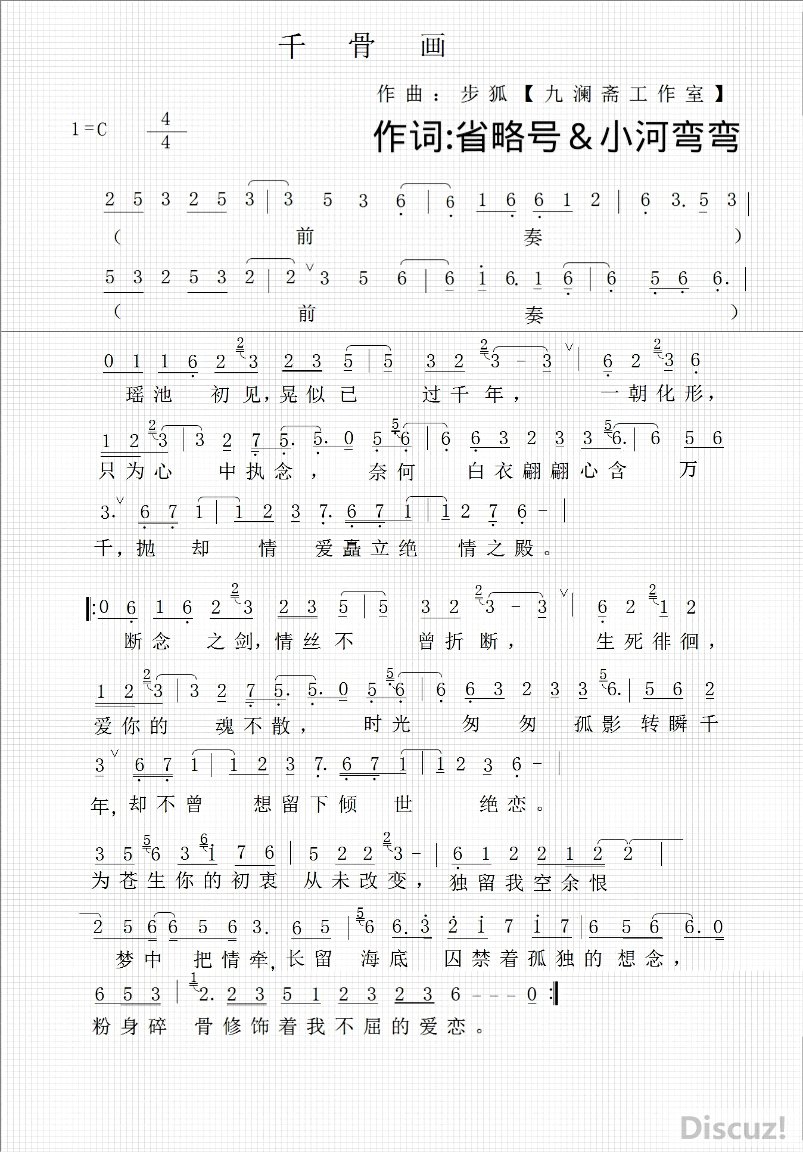 千骨画
作曲：步狐【九澜斋工作室】
1=C 4/4
作词:省略号＆小河弯弯
2 5 3 2 5 3 | 3 5 3 6 | 6 1 6 6 1 2 | 6 3. 5 3 |
（ 前 奏 ）
5 3 2 5 3 2 | 2 ∨ 3 5 6 | 6 1 6. 1 6 | 6 5 6 6. |
（ 前 奏 ）
0 1 1 6 2 3 2 3 5 | 5 3 2 2 3 - 3 ∨ | 6 2 3 6
瑶池 初见,晃似已 过千年， 一朝化形，
1 2 2 3 | 3 2 7 5. 5. 0 5 5 6 | 6 6 3 2 3 3 5 6. | 6 5 6
只为心 中执念， 奈何 白衣翩翩心含 万
3. ∨ 6 7 1 | 1 2 3 7. 6 7 1 | 1 2 7 6 - |
千,抛 却 情 爱矗立绝 情之殿。
|: 0 6 1 6 2 3 2 3 5 | 5 3 2 2 3 - 3 ∨ | 6 2 2 1 2
断念 之剑,情丝不 曾折断， 生死徘徊，
1 2 2 3 | 3 2 7 5. 5. 0 5 5 6 | 6 6 3 2 3 3 5 6. | 5 6 2
爱你的 魂不散， 时光 匆 匆 孤影 转瞬千
3 ∨ 6 7 1 | 1 2 3 7. 6 7 1 | 1 2 3 6 - |
年,却不曾 想留下倾 世 绝恋。
3 5 5 6 3 6 1 7 6 | 5 2 2 2 3 - | 6 1 2 2 1 2 2 |
为苍生你的初衷 从未改变， 独留我空余恨
2 5 6 6 5 6 3. 6 5 | 5 6 6. 3 2 1 7 1 7 | 6 5 6 6. 0
梦中 把情牵,长留 海底 囚禁着孤独的想念，
6 5 3 | 1 2. 2 3 5 1 2 3 2 3 6 - - - 0 :|
粉身碎 骨修饰着我不屈的爱恋。
Discuz!